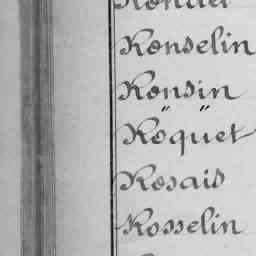 Ronselin
Ronsin
" "
Roquet
Rosais
Rosselin